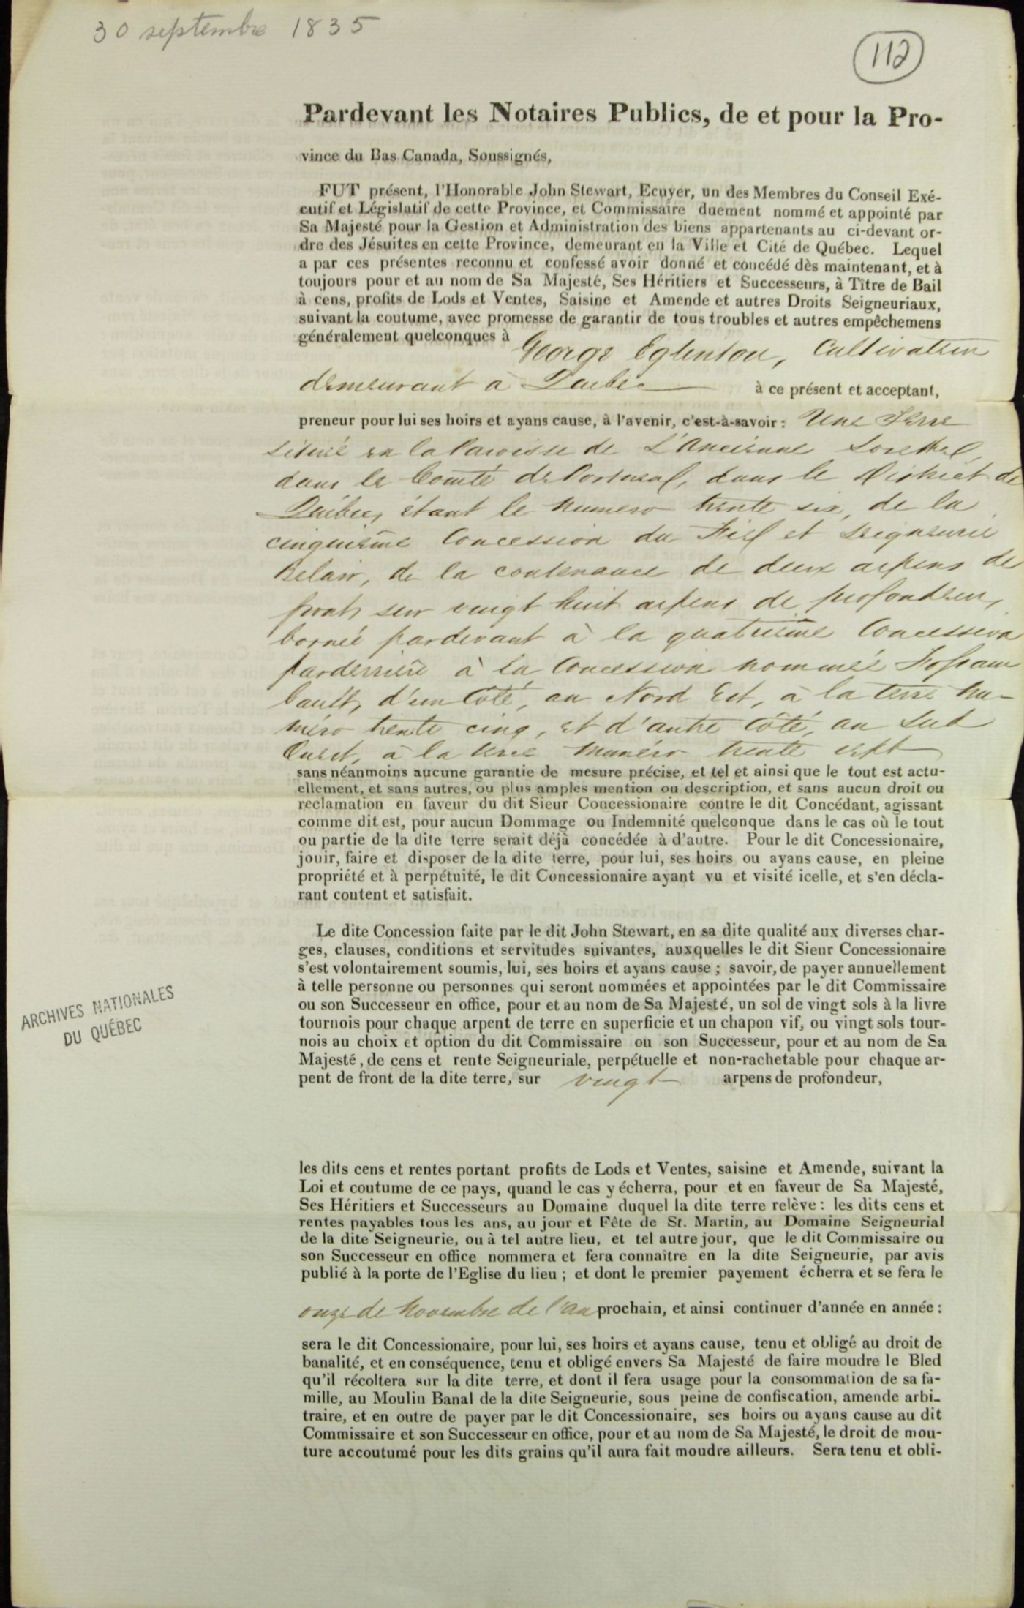 30 septembre 1835
112
Pardevant les Notaires Publics, de et pour la Pro-
vince du Bas Canada, Soussignés,
FUT présent, l'Honorable John Stewart, Ecuyer, un des Membres du Conseil Exé-
cutif et Législatif de cette Province, et Commissaire duement nommé et appointé par
Sa Majesté pour la Gestion et Administration des biens appartenants au ci-devant or-
dre des Jésuites en cette Province, demeurant en la Ville et Cité de Québec. Lequel
a par ces présentes reconnu et confessé avoir donné et concédé dès maintenant, et à
toujours pour et au nom de Sa Majesté, Ses Héritiers et Successeurs, à Titre de Bail
à cens, profits de Lods et Ventes, Saisine et Amende et autres Droits Seigneuriaux,
suivant la coutume, avec promesse de garantir de tous troubles et autres empêchemens
généralement quelconques à George Eglinton, Cultivateur
demeurant à Québec à ce présent et acceptant,
preneur pour lui ses hoirs et ayans cause, à l'avenir, c'est-à-savoir: Une Terre
située en la Paroisse de L'Ancienne Lorette,
dans le Comté de Portneuf, dans le District de
Québec, étant le numero trente six, de la
cinquième Concession du Fief et Seigneurie
Belair, de la contenance de deux arpens de
front, sur vingt huit arpens de profondeur,
bornée pardevant à la quatrième Concession
parderrière à la Concession nommée Fossam
bault, d'un Côté, au Nord Est, à la terre nu-
méro trente cinq, et d'autre Côté, au Sud
Ouest, à la terre numéro trente sept
sans néanmoins aucune garantie de mesure précise, et tel et ainsi que le tout est actu-
ellement, et sans autres, ou plus amples mention ou description, et sans aucun droit ou
réclamation en faveur du dit Sieur Concessionaire contre le dit Concédant, agissant
comme dit est, pour aucun Dommage ou Indemnité quelconque dans le cas où le tout
ou partie de la dite terre serait déjà concédée à d'autre. Pour le dit Concessionaire,
jouir, faire et disposer de la dite terre, pour lui, ses hoirs ou ayans cause, en pleine
propriété et à perpétuité, le dit Concessionaire ayant vu et visité icelle, et s'en décla-
rant content et satisfait.
Le dite Concession faite par le dit John Stewart, en sa dite qualité aux diverses char-
ges, clauses, conditions et servitudes suivantes, auxquelles le dit Sieur Concessionaire
s'est volontairement soumis, lui, ses hoirs et ayans cause; savoir, de payer annuellement
à telle personne ou personnes qui seront nommées et appointées par le dit Commissaire
ou son Successeur en office, pour et au nom de Sa Majesté, un sol de vingt sols à la livre
tournois pour chaque arpent de terre en superficie et un chapon vif, ou vingt sols tour-
nois au choix et option du dit Commissaire ou son Successeur, pour et au nom de Sa
Majesté, de cens et rente Seigneuriale, perpétuelle et non-rachetable pour chaque ar-
pent de front de la dite terre, sur vingt arpens de profondeur,
ARCHIVES NATIONALES
DU QUÉBEC
les dits cens et rentes portant profits de Lods et Ventes, saisine et Amende, suivant la
Loi et coutume de ce pays, quand le cas y écherra, pour et en faveur de Sa Majesté,
Ses Héritiers et Successeurs au Domaine duquel la dite terre relève: les dits cens et
rentes payables tous les ans, au jour et Fête de St. Martin, au Domaine Seigneurial
de la dite Seigneurie, ou à tel autre lieu, et tel autre jour, que le dit Commissaire ou
son Successeur en office nommera et fera connaître en la dite Seigneurie, par avis
publié à la porte de l'Eglise du lieu; et dont le premier payement écherra et se fera le
onze de Novembre de l'an prochain, et ainsi continuer d'année en année:
sera le dit Concessionaire, pour lui, ses hoirs et ayans cause, tenu et obligé au droit de
banalité, et en conséquence, tenu et obligé envers Sa Majesté de faire moudre le Bled
qu'il récoltera sur la dite terre, et dont il fera usage pour la consommation de sa fa-
mille, au Moulin Banal de la dite Seigneurie, sous peine de confiscation, amende arbi-
traire, et en outre de payer par le dit Concessionaire, ses hoirs ou ayans cause au dit
Commissaire et son Successeur en office, pour et au nom de Sa Majesté, le droit de mou-
ture accoutumé pour les dits grains qu'il aura fait moudre ailleurs. Sera tenu et obli-